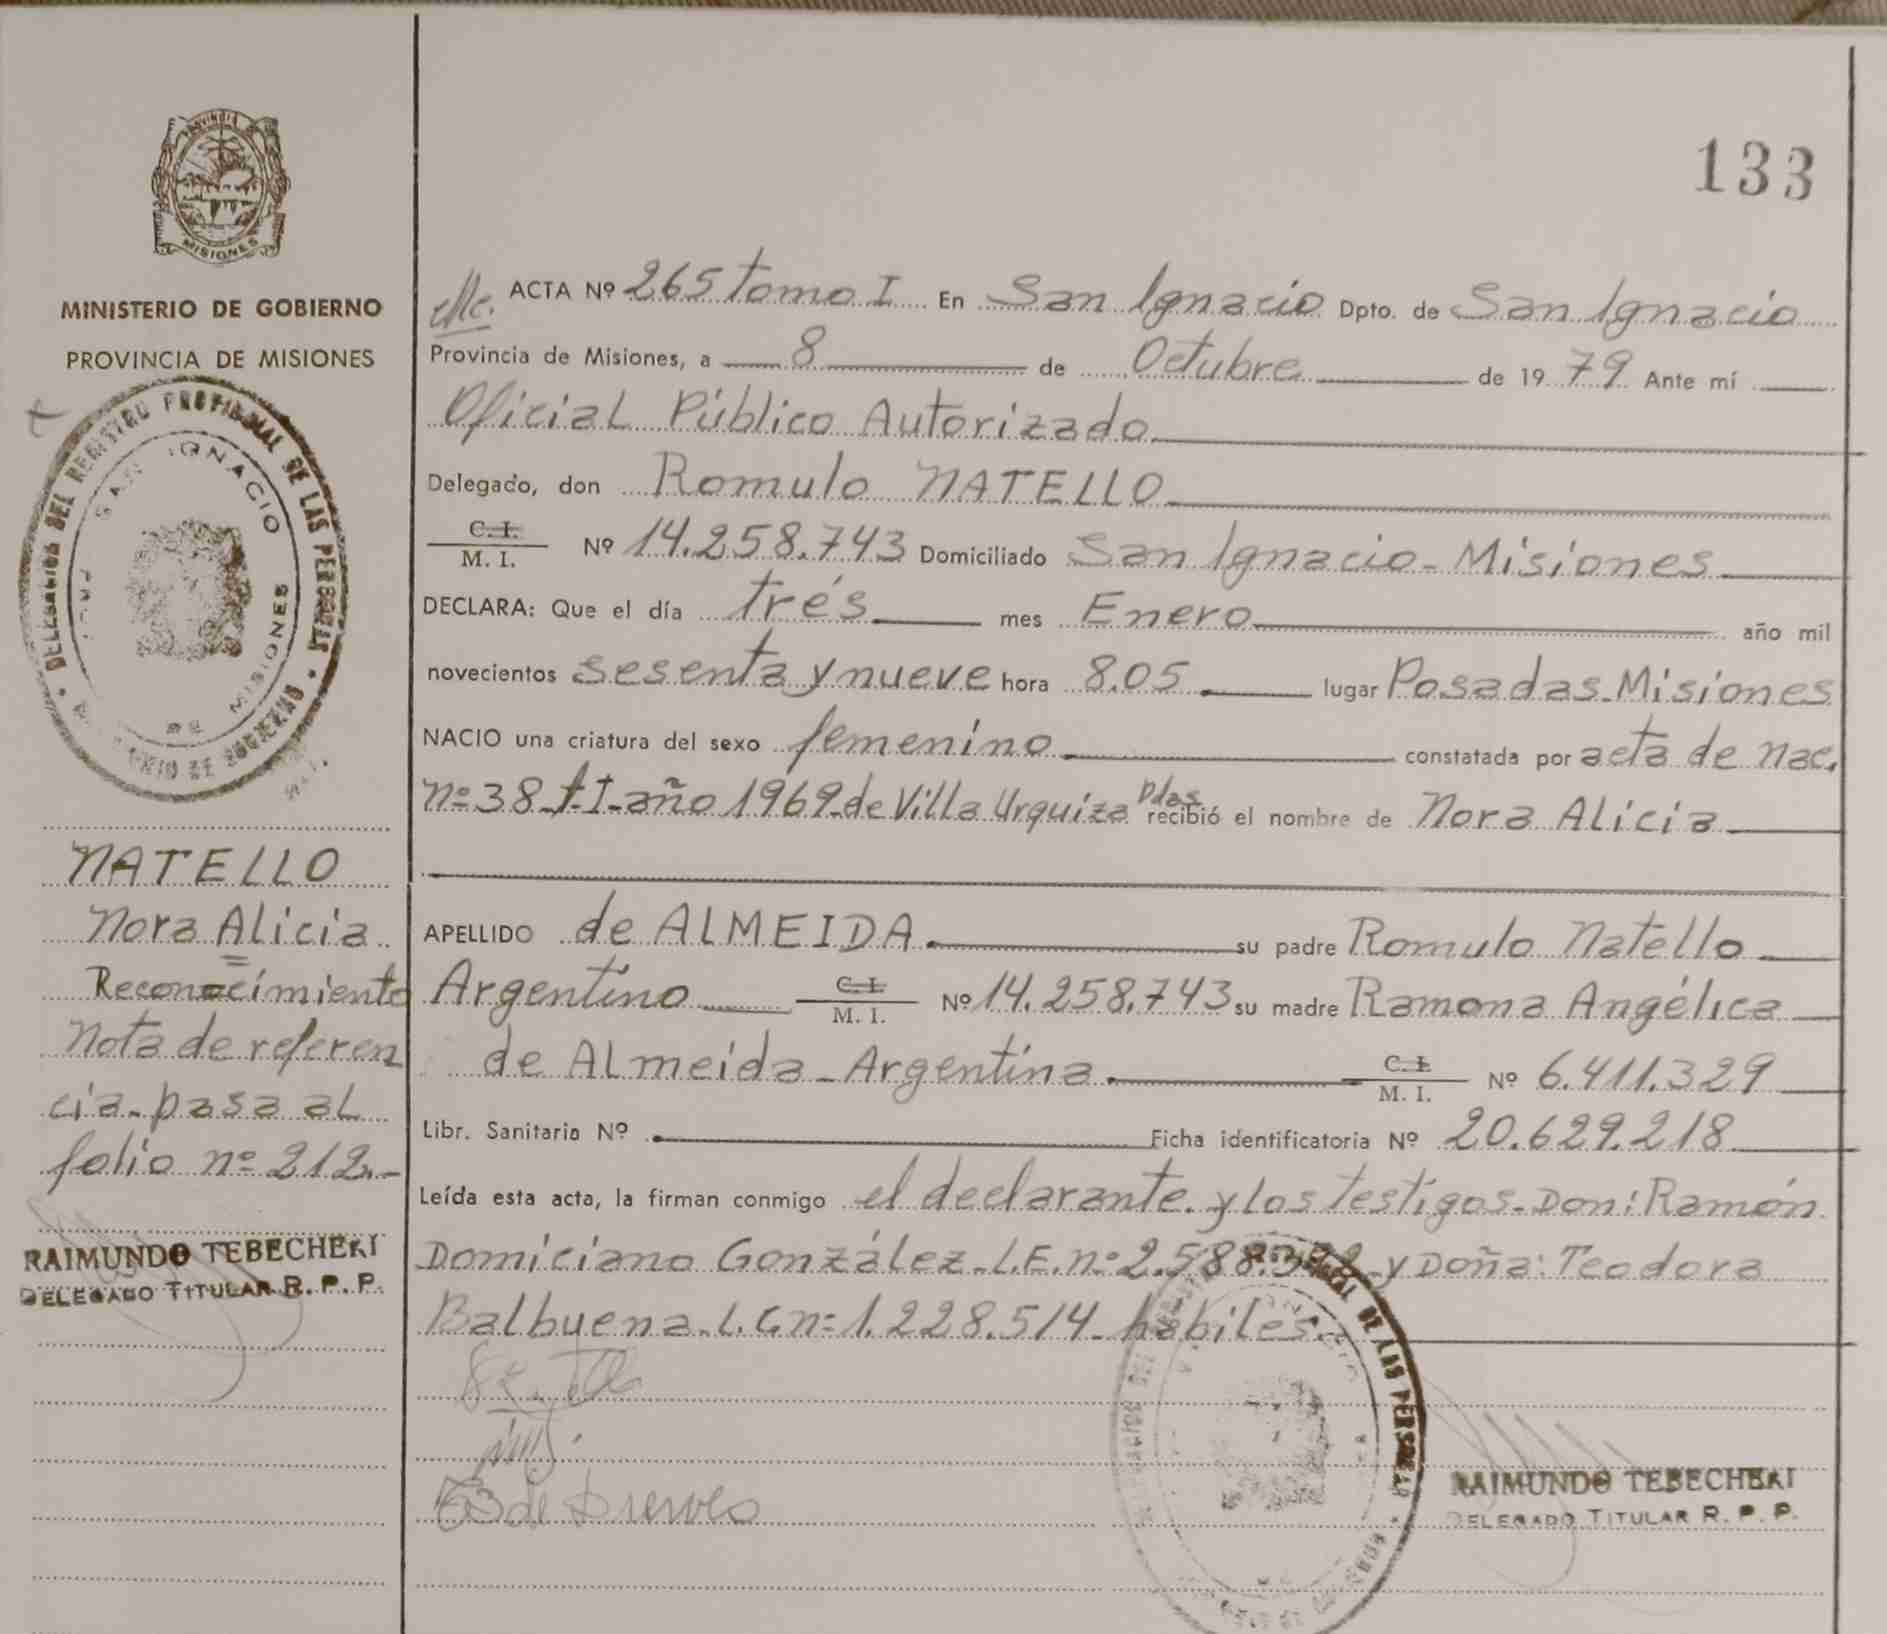 PROVINCIA DE
MISIONES
MINISTERIO DE GOBIERNO
PROVINCIA DE MISIONES
DELEGACION DEL REGISTRO PROVINCIAL DE LAS PERSONAS
SAN IGNACIO
MISIONES
NATELLO
Nora Alicia
Reconocimiento
Nota de referen
cia-pasa al
folio nº 212.-
RAIMUNDO TEBECHERI
DELEGADO TITULAR R. P. P.
133
ACTA Nº 265 tomo I En San Ignacio Dpto. de San Ignacio
Provincia de Misiones, a 8 de Octubre de 19 79 Ante mí
Oficial Público Autorizado
Delegado, don Romulo NATELLO
C. I.
M. I. Nº 14.258.743 Domiciliado San Ignacio-Misiones
DECLARA: Que el día trés mes Enero año mil
novecientos sesenta y nueve hora 8.05 lugar Posadas-Misiones
NACIO una criatura del sexo femenino constatada por acta de nac.
nº 38-t.I-año 1969-de Villa Urquiza Pdas. recibió el nombre de Nora Alicia
APELLIDO de ALMEIDA su padre Romulo Natello
Argentino C. I. M. I. Nº 14.258.743 su madre Ramona Angélica
de Almeida-Argentina C. I. M. I. Nº 6.411.329
Libr. Sanitaria Nº Ficha identificatoria Nº 20.629.218
Leída esta acta, la firman conmigo el declarante y los testigos-Don: Ramón
Domiciano González-L.E.nº 2.588. y Doña: Teodora
Balbuena-L.C nº 1.228.514 hábiles.
DE LAS PERSONAS
RAIMUNDO TEBECHERI
DELEGADO TITULAR R. P. P.